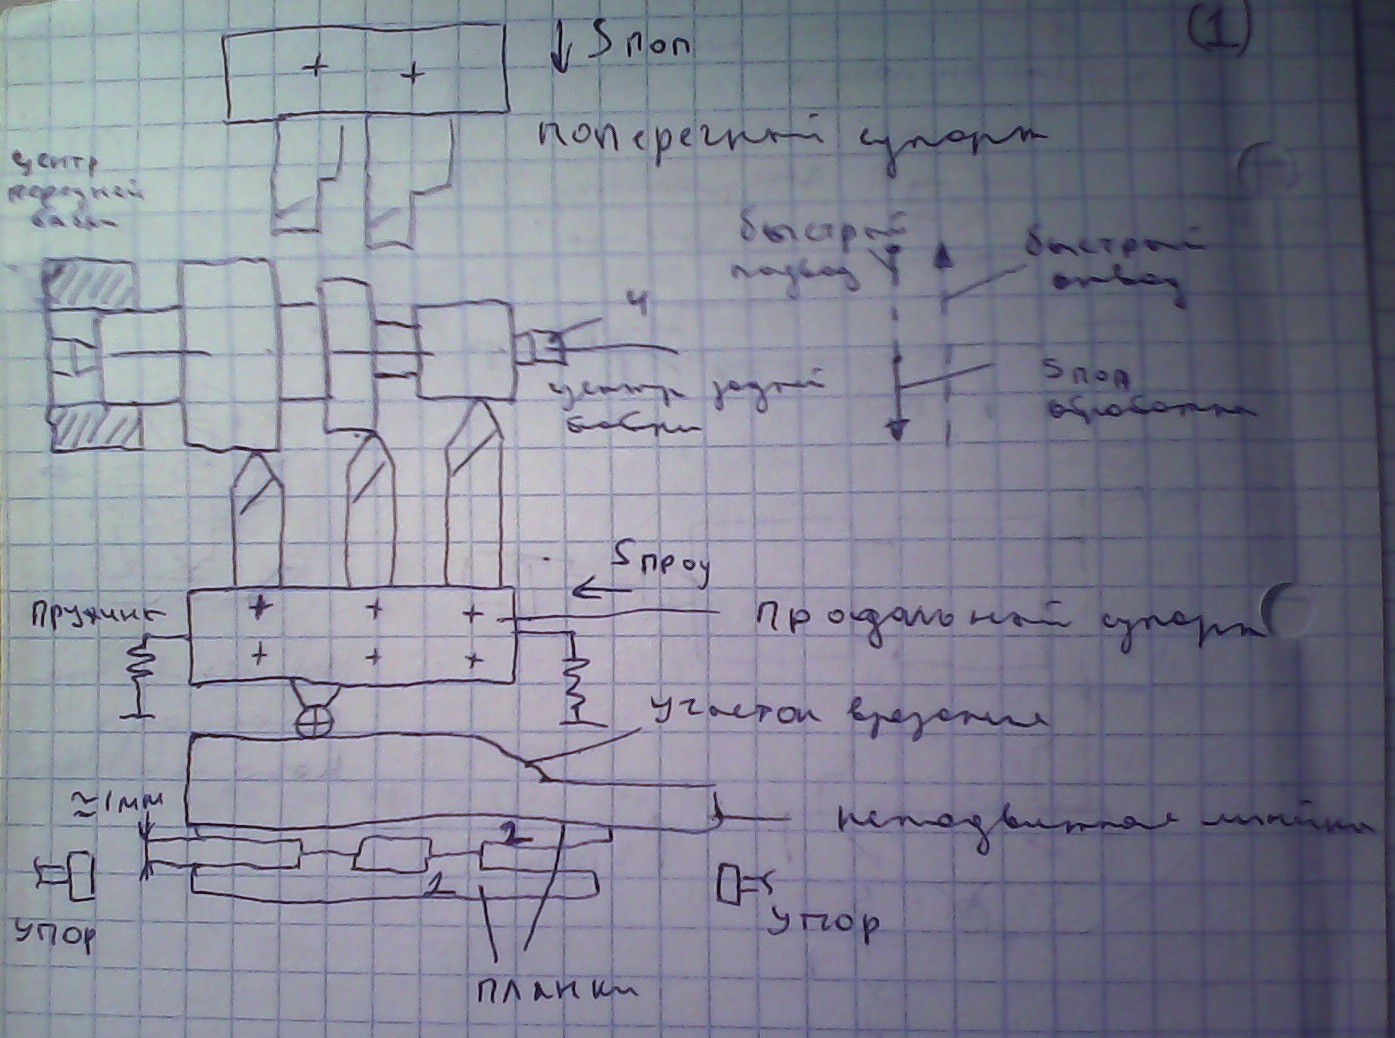 (1)
Sпоп
поперечный супорт
центр
передней
бабки
быстрый
подвод
быстрый
отвод
4
центр задней
бабки
Sпоп
обработки
Sпрод
пружина
продольный супорт
участок врезания
≈1мм
неподвижная линейка
2
1
упор
упор
планки